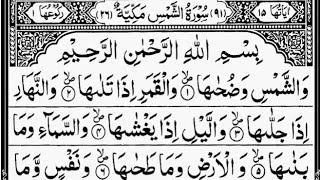 اٰیَاتُهَا ١٥ (٩١) سُوْرَةُ الشَّمْسِ مَكِّيَّةٌ (٢٦) رُكُوْعُهَا ١
بِسْمِ اللّٰهِ الرَّحْمٰنِ الرَّحِيْمِ
وَالشَّمْسِ وَضُحٰىهَا ۪ۙ‏﴿۱﴾ وَالْقَمَرِ اِذَا تَلٰىهَا ۪ۙ‏﴿۲﴾ وَالنَّهَارِ
اِذَا جَلّٰىهَا ۪ۙ‏﴿۳﴾ وَالَّيْلِ اِذَا يَغْشٰىهَا ۪ۙ‏﴿۴﴾ وَالسَّمَآءِ وَمَا
بَنٰىهَا ۪ۙ‏﴿۵﴾ وَالْاَرْضِ وَمَا طَحٰىهَا ۪ۙ‏﴿۶﴾ وَنَفْسٍ وَّمَا